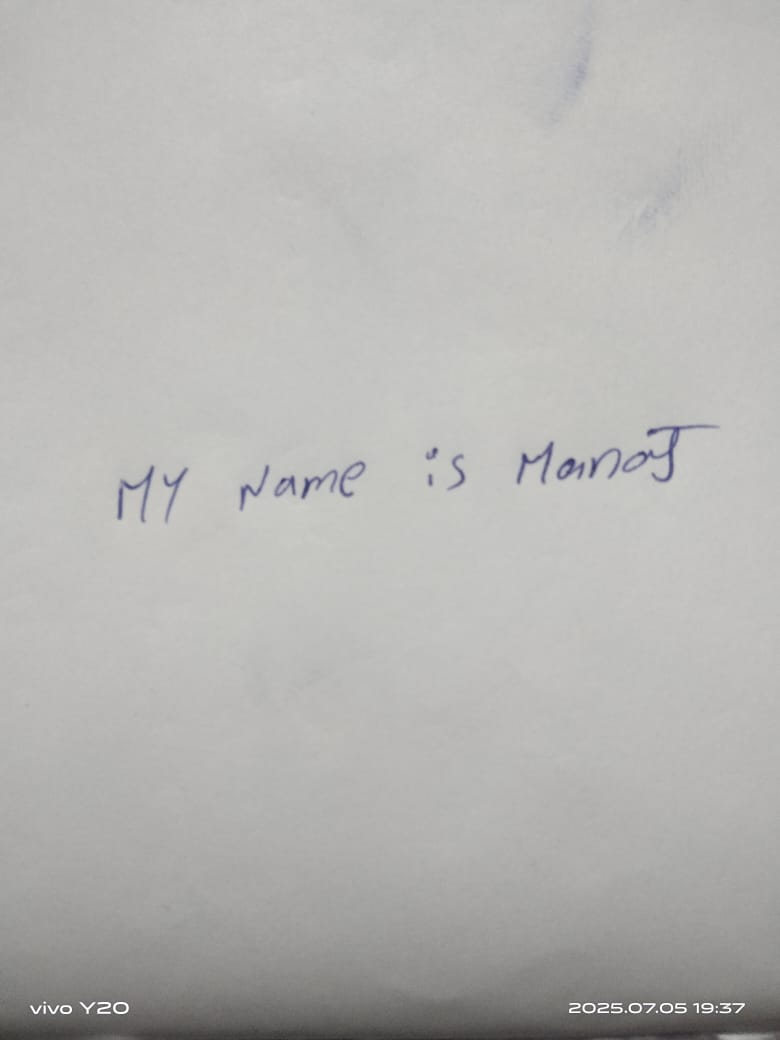 MY Name is ManoJ
vivo Y20
2025.07.05 19:37